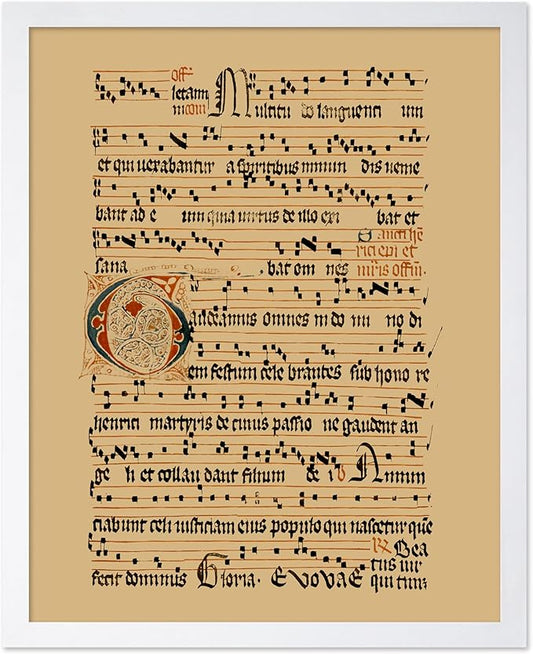 off
letam
ni com Multitu do languenti um
et qui vexabantur a spiritibus inmun dis venie
bant ad e um quia virtus de illo exi bat et
Sancti hē
sana bat om nes rici epi et
mr̄is offm̄.
Gaudeamus omnes in do mi no di
em festum cele brantes sub hono re
henrici martyris de cuius passio ne gaudent an
ge li et collau dant filium de i v Annun
ciabunt celi iusticiam eius populo qui nascetur que
℟ Bea
fecit dominus Gloria. EVOVAE tus vir
qui tim